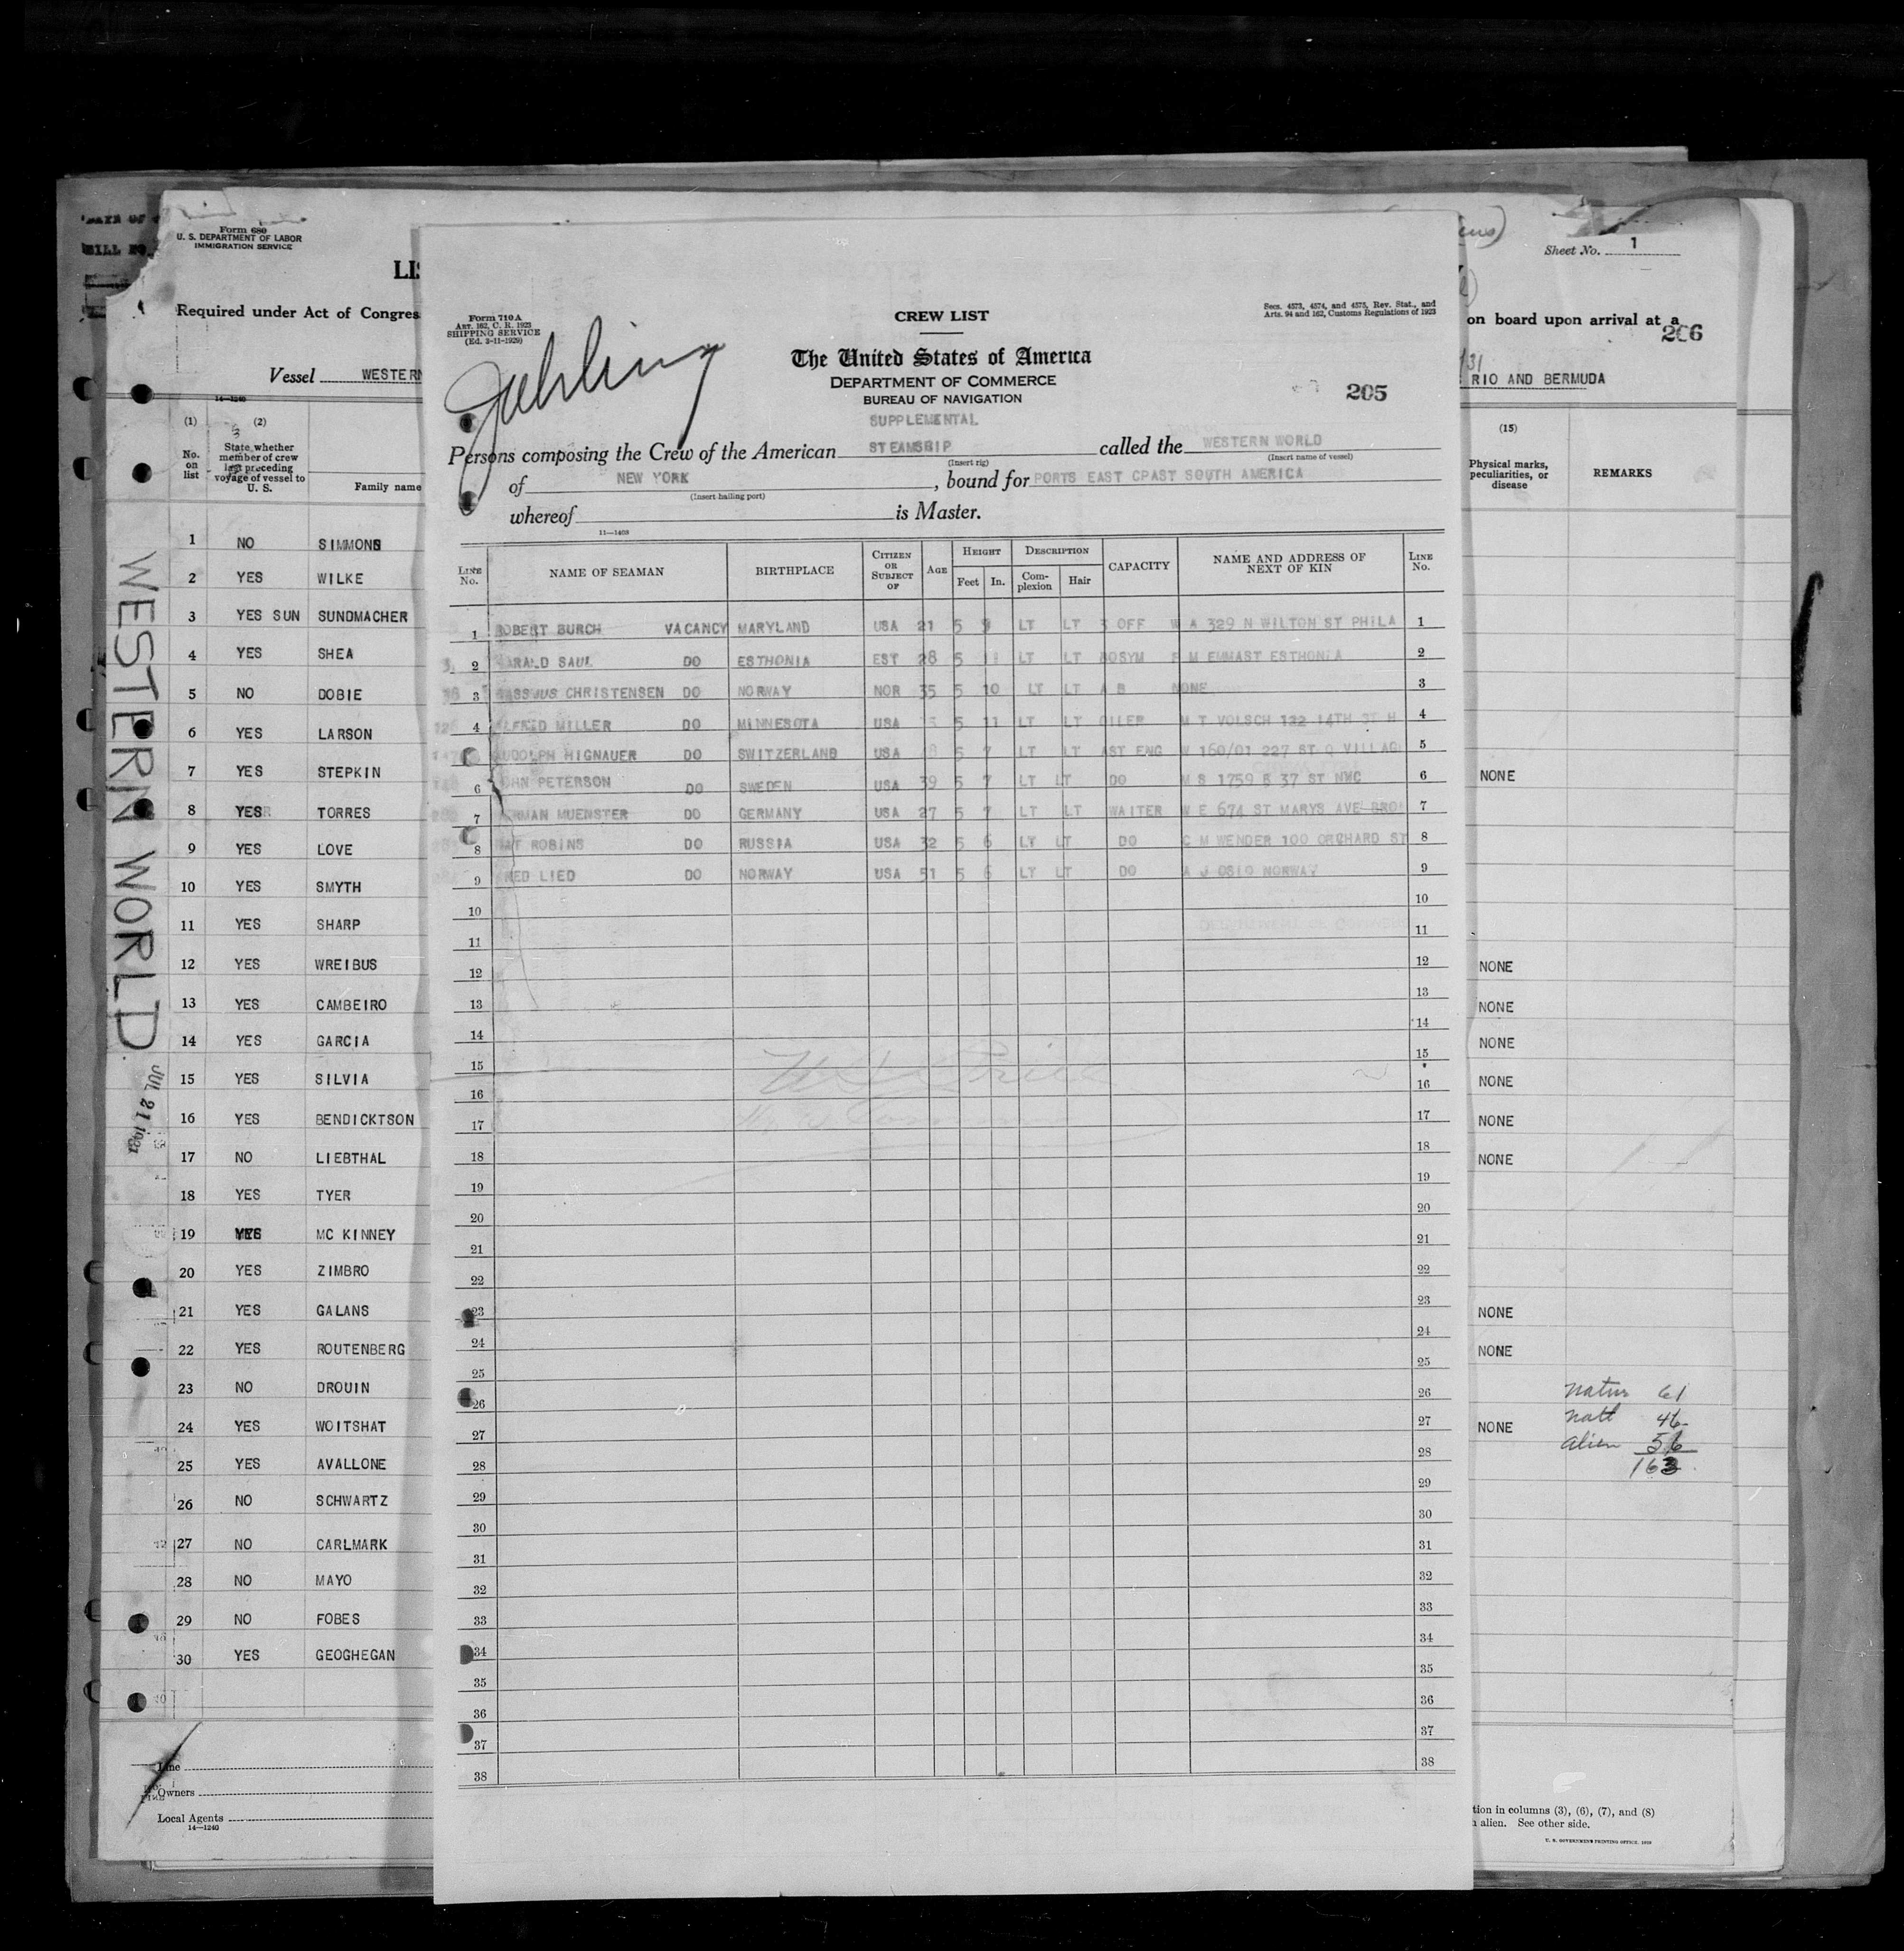 Form 680
U. S. DEPARTMENT OF LABOR
IMMIGRATION SERVICE
Required under Act of Congres
Vessel WESTERN
14—1240
(1) (2)
No. on list
State whether member of crew last preceding voyage of vessel to U. S.
Family name
1 NO SIMMONS
2 YES WILKE
3 YES SUN SUNDMACHER
4 YES SHEA
5 NO DOBIE
6 YES LARSON
7 YES STEPKIN
8 YES TORRES
9 YES LOVE
10 YES SMYTH
11 YES SHARP
12 YES WREIBUS
13 YES CAMBEIRO
14 YES GARCIA
15 YES SILVIA
16 YES BENDICKTSON
17 NO LIEBTHAL
18 YES TYER
19 YES MC KINNEY
20 YES ZIMBRO
21 YES GALANS
22 YES ROUTENBERG
23 NO DROUIN
24 YES WOITSHAT
25 YES AVALLONE
26 NO SCHWARTZ
27 NO CARLMARK
28 NO MAYO
29 NO FOBES
30 YES GEOGHEGAN
Line
Owners
Local Agents
14—1240
WESTERN WORLD
JUL 21
Form 710A
ART. 162, C. R. 1923
SHIPPING SERVICE
(Ed. 3-11-1929)
CREW LIST
Secs. 4573, 4574, and 4575, Rev. Stat., and
Arts. 94 and 162, Customs Regulations of 1923
The United States of America
DEPARTMENT OF COMMERCE
BUREAU OF NAVIGATION
205
SUPPLEMENTAL
Persons composing the Crew of the American STEAMSHIP called the WESTERN WORLD
(Insert rig) (Insert name of vessel)
of NEW YORK, bound for PORTS EAST CPAST SOUTH AMERICA
(Insert hailing port)
whereof is Master.
11—1408
LINE No. NAME OF SEAMAN BIRTHPLACE CITIZEN OR SUBJECT OF AGE HEIGHT Feet In. DESCRIPTION Complexion Hair CAPACITY NAME AND ADDRESS OF NEXT OF KIN LINE No.
1 ROBERT BURCH VACANCY MARYLAND USA 21 5 9 LT LT OFF W A 329 N WILTON ST PHILA 1
2 HARALD SAUL DO ESTHONIA EST 28 5 11 LT LT BOSYM F M EMMAST ESTHONIA 2
3 RASSMUS CHRISTENSEN DO NORWAY NOR 35 5 10 LT LT A B NONE 3
4 ALFRED MILLER DO MINNESOTA USA 5 11 LT LT OILER M T VOLSCH 132 14TH ST H 4
5 RUDOLPH HIGNAUER DO SWITZERLAND USA 5 7 LT LT AST ENG W 160/01 227 ST Q VILLAG 5
6 JOHN PETERSON DO SWEDEN USA 39 5 7 LT LT DO M S 1759 E 37 ST NWC 6
7 HERMAN MUENSTER DO GERMANY USA 27 5 7 LT LT WAITER W E 674 ST MARYS AVE BRO 7
8 NAT ROBINS DO RUSSIA USA 32 5 6 LT LT DO C M WENDER 100 ORCHARD ST 8
9 FRED LIED DO NORWAY USA 51 5 6 LT LT DO A J OSLO NORWAY 9
10 10
11 11
12 12
13 13
14 14
15 15
16 16
17 17
18 18
19 19
20 20
21 21
22 22
23 23
24 24
25 25
26 26
27 27
28 28
29 29
30 30
31 31
32 32
33 33
34 34
35 35
36 36
37 37
38 38
Sheet No. 1
on board upon arrival at a
206
RIO AND BERMUDA
(15)
Physical marks, peculiarities, or disease
REMARKS
NONE
NONE
NONE
NONE
NONE
NONE
NONE
NONE
NONE
NONE
natur 61
natl 46
alien 56
163
tion in columns (3), (6), (7), and (8)
alien. See other side.
U. S. GOVERNMENT PRINTING OFFICE